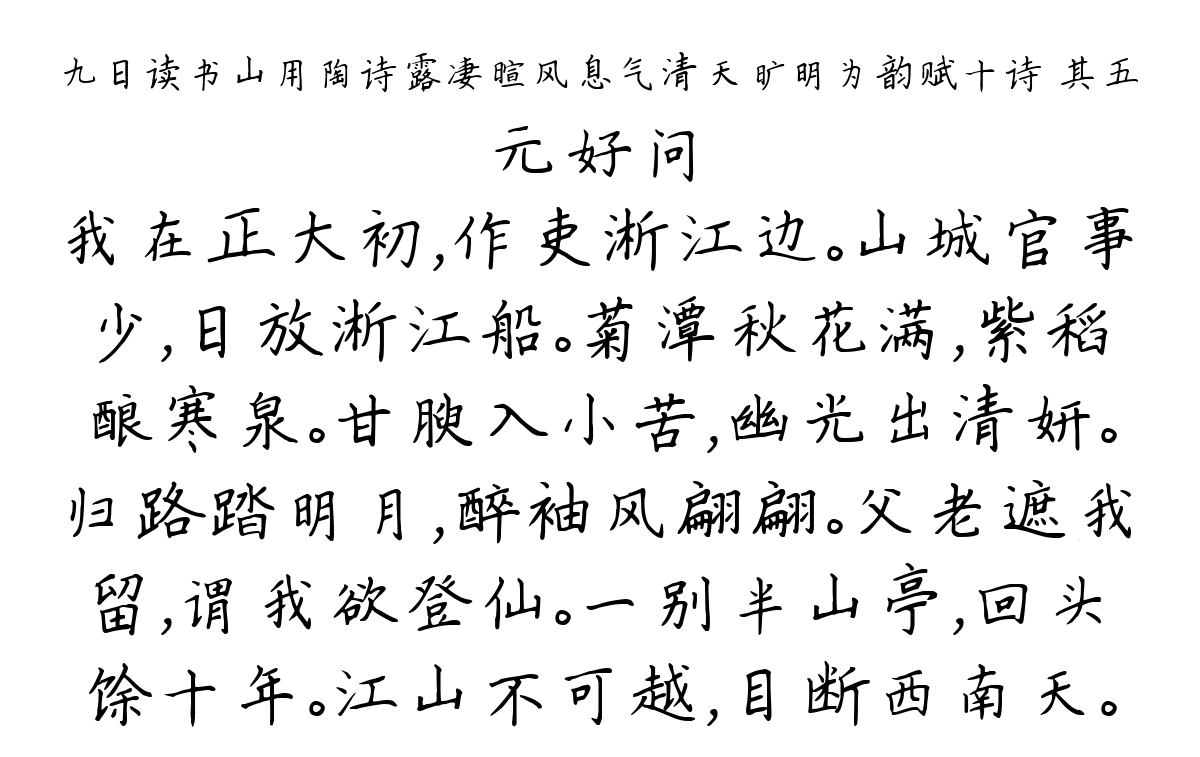 九日读书山用陶诗露凄暄风息气清天旷明为韵赋十诗 其五
元好问
我在正大初,作吏淅江边。山城官事
少,日放淅江船。菊潭秋花满,紫稻
酿寒泉。甘腴入小苦,幽光出清妍。
归路踏明月,醉袖风翩翩。父老遮我
留,谓我欲登仙。一别半山亭,回头
馀十年。江山不可越,目断西南天。